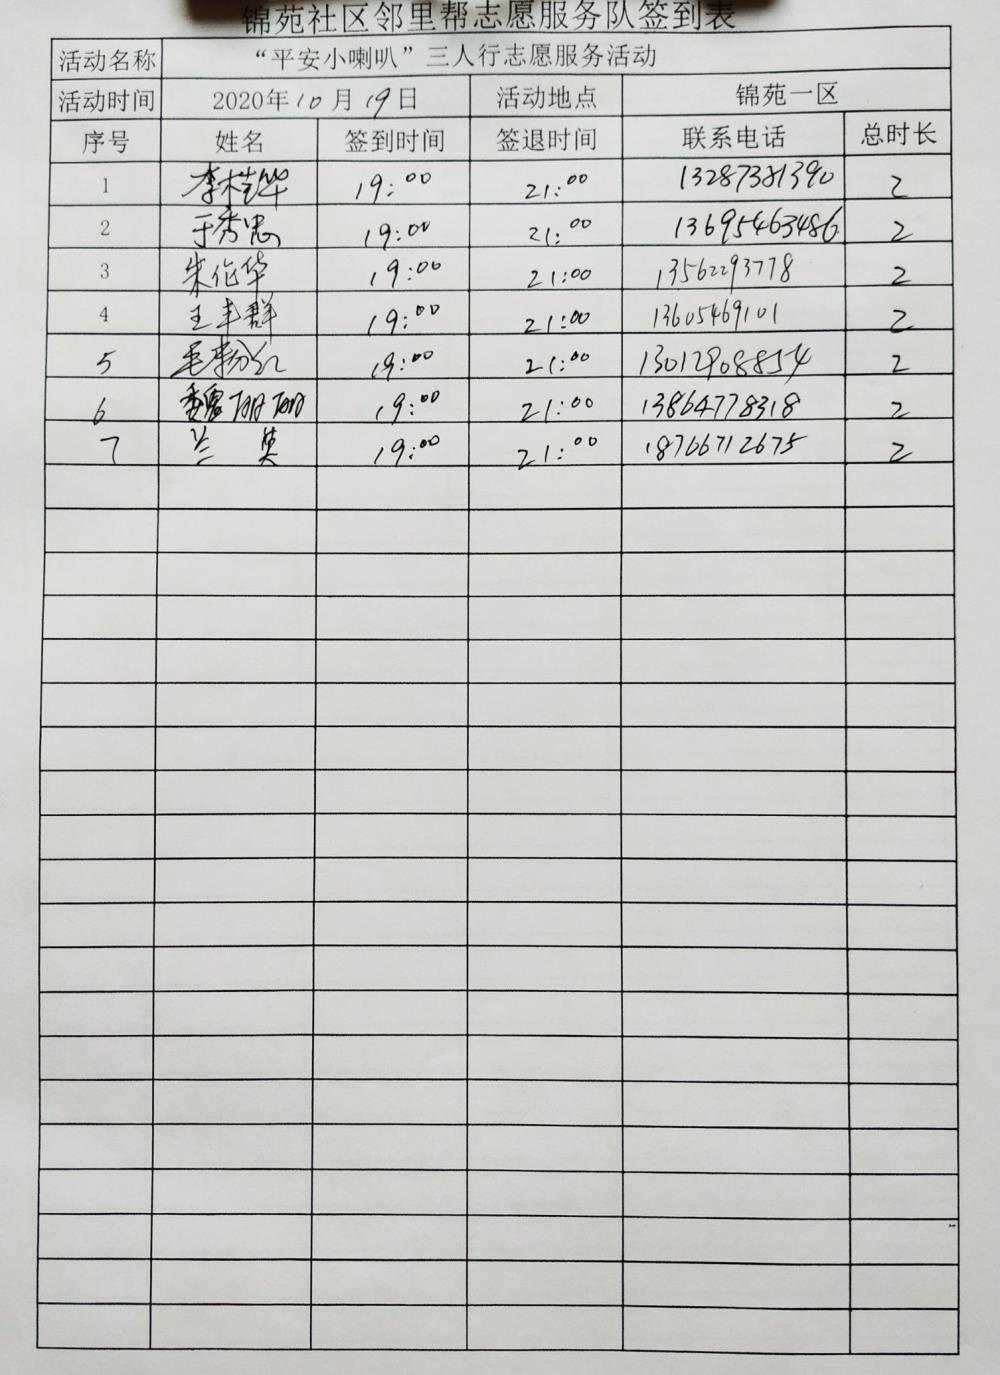 锦苑社区邻里帮志愿服务队签到表
活动名称 “平安小喇叭”三人行志愿服务活动
活动时间 2020年10月19日 活动地点 锦苑一区
序号 姓名 签到时间 签退时间 联系电话 总时长
1 19:00 21:00 13287381390 2
2 于秀忠 19:00 21:00 13695463486 2
3 朱作华 19:00 21:00 13562293778 2
4 王丰群 19:00 21:00 13605469101 2
5 19:00 21:00 13012908854 2
6 魏珊珊 19:00 21:00 13864778318 2
7 兰英 19:00 21:00 18766712675 2